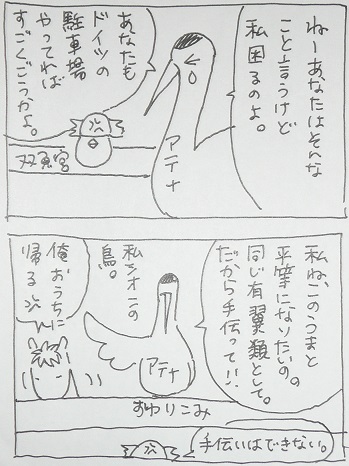 ねーあなたはそんな
こと言うけど
私困るのよ。
あなたも
ドイツの
駐車場
やってれば
すごくごうかよ。
アテナ
双魚宮
私ねこのうまと
平等になりたいの。
同じ有翼類として。
だから手伝って!!
私シオンの
鳥。
アテナ
俺おうちに
帰る
すわりこみ
手伝いはできない。